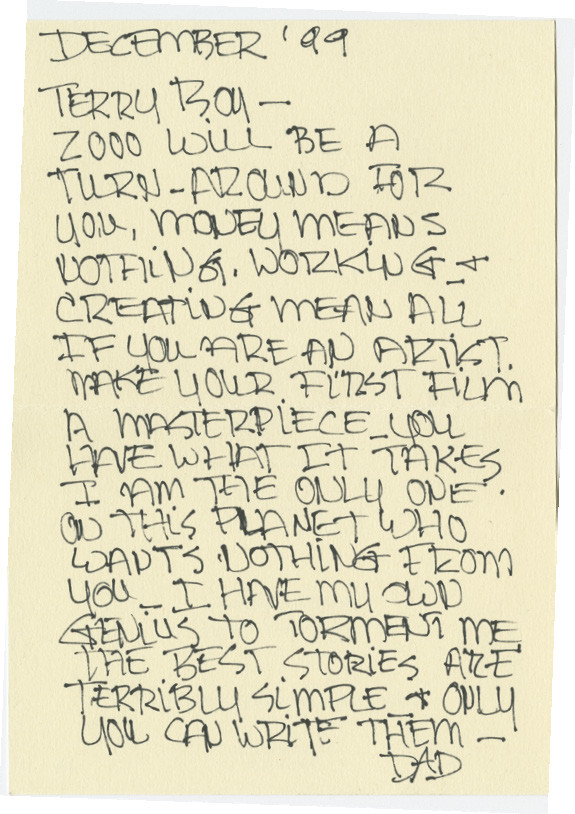 DECEMBER '99
TERRY BOY —
2000 WILL BE A
TURN-AROUND FOR
YOU, MONEY MEANS
NOTHING. WORKING +
CREATING MEAN ALL
IF YOU ARE AN ARTIST.
MAKE YOUR FIRST FILM
A MASTERPIECE_YOU
HAVE WHAT IT TAKES
I AM THE ONLY ONE
ON THIS PLANET WHO
WANTS NOTHING FROM
YOU_I HAVE MY OWN
GENIUS TO TORMENT ME
THE BEST STORIES ARE
TERRIBLY SIMPLE_+ ONLY
YOU CAN WRITE THEM —
DAD